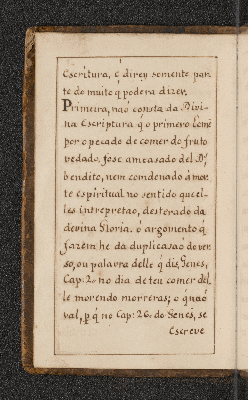 Escritura, é direy somente par-
te do muito q̃ podera dizer.
Primeira, naõ consta da Divi-
na Escriptura q̃ o primero home
por o pecado de comer do fruto
vedado, fose ameasado del Dſ
bendito, nem comdenado á mor-
te espiritual no sentido que el-
les intrepretaõ, desterado da
devina Gloria. o argomento q̃
fazem he da duplicasaõ de ver-
so, ou palavra delle q̃ dis, Genes,
Cap: 2. no dia de teu comer del-
le morendo morreras; o q̃ naõ
val, p. q̃ no Cap: 26. do Genes, se
Escreve